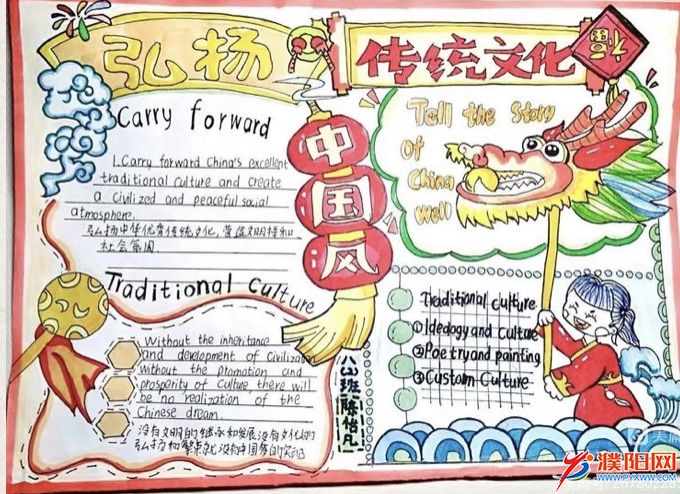 弘扬
传统文化
福
Carry forward
1.Carry forward China's excellent
traditional culture and create
a civilized and peaceful social
atmosphere.
弘扬中华优秀传统文化,营造文明祥和
社会氛围.
Traditional Culture
Without the inheritance
and development of Civilization
without the promotion and
prosperity of Culture, there will
be no realization of the
Chinese dream.
没有文明的继承和发展没有文化的
弘扬和繁荣就没有中国梦的实现
中国风
八(3)班陈怡凡
Tell the Story
Of
China
Well
Traditional culture
①Ideology and culture
②Poetry and painting
③Custom Culture
濮阳网
WWW.PYXWW.COM